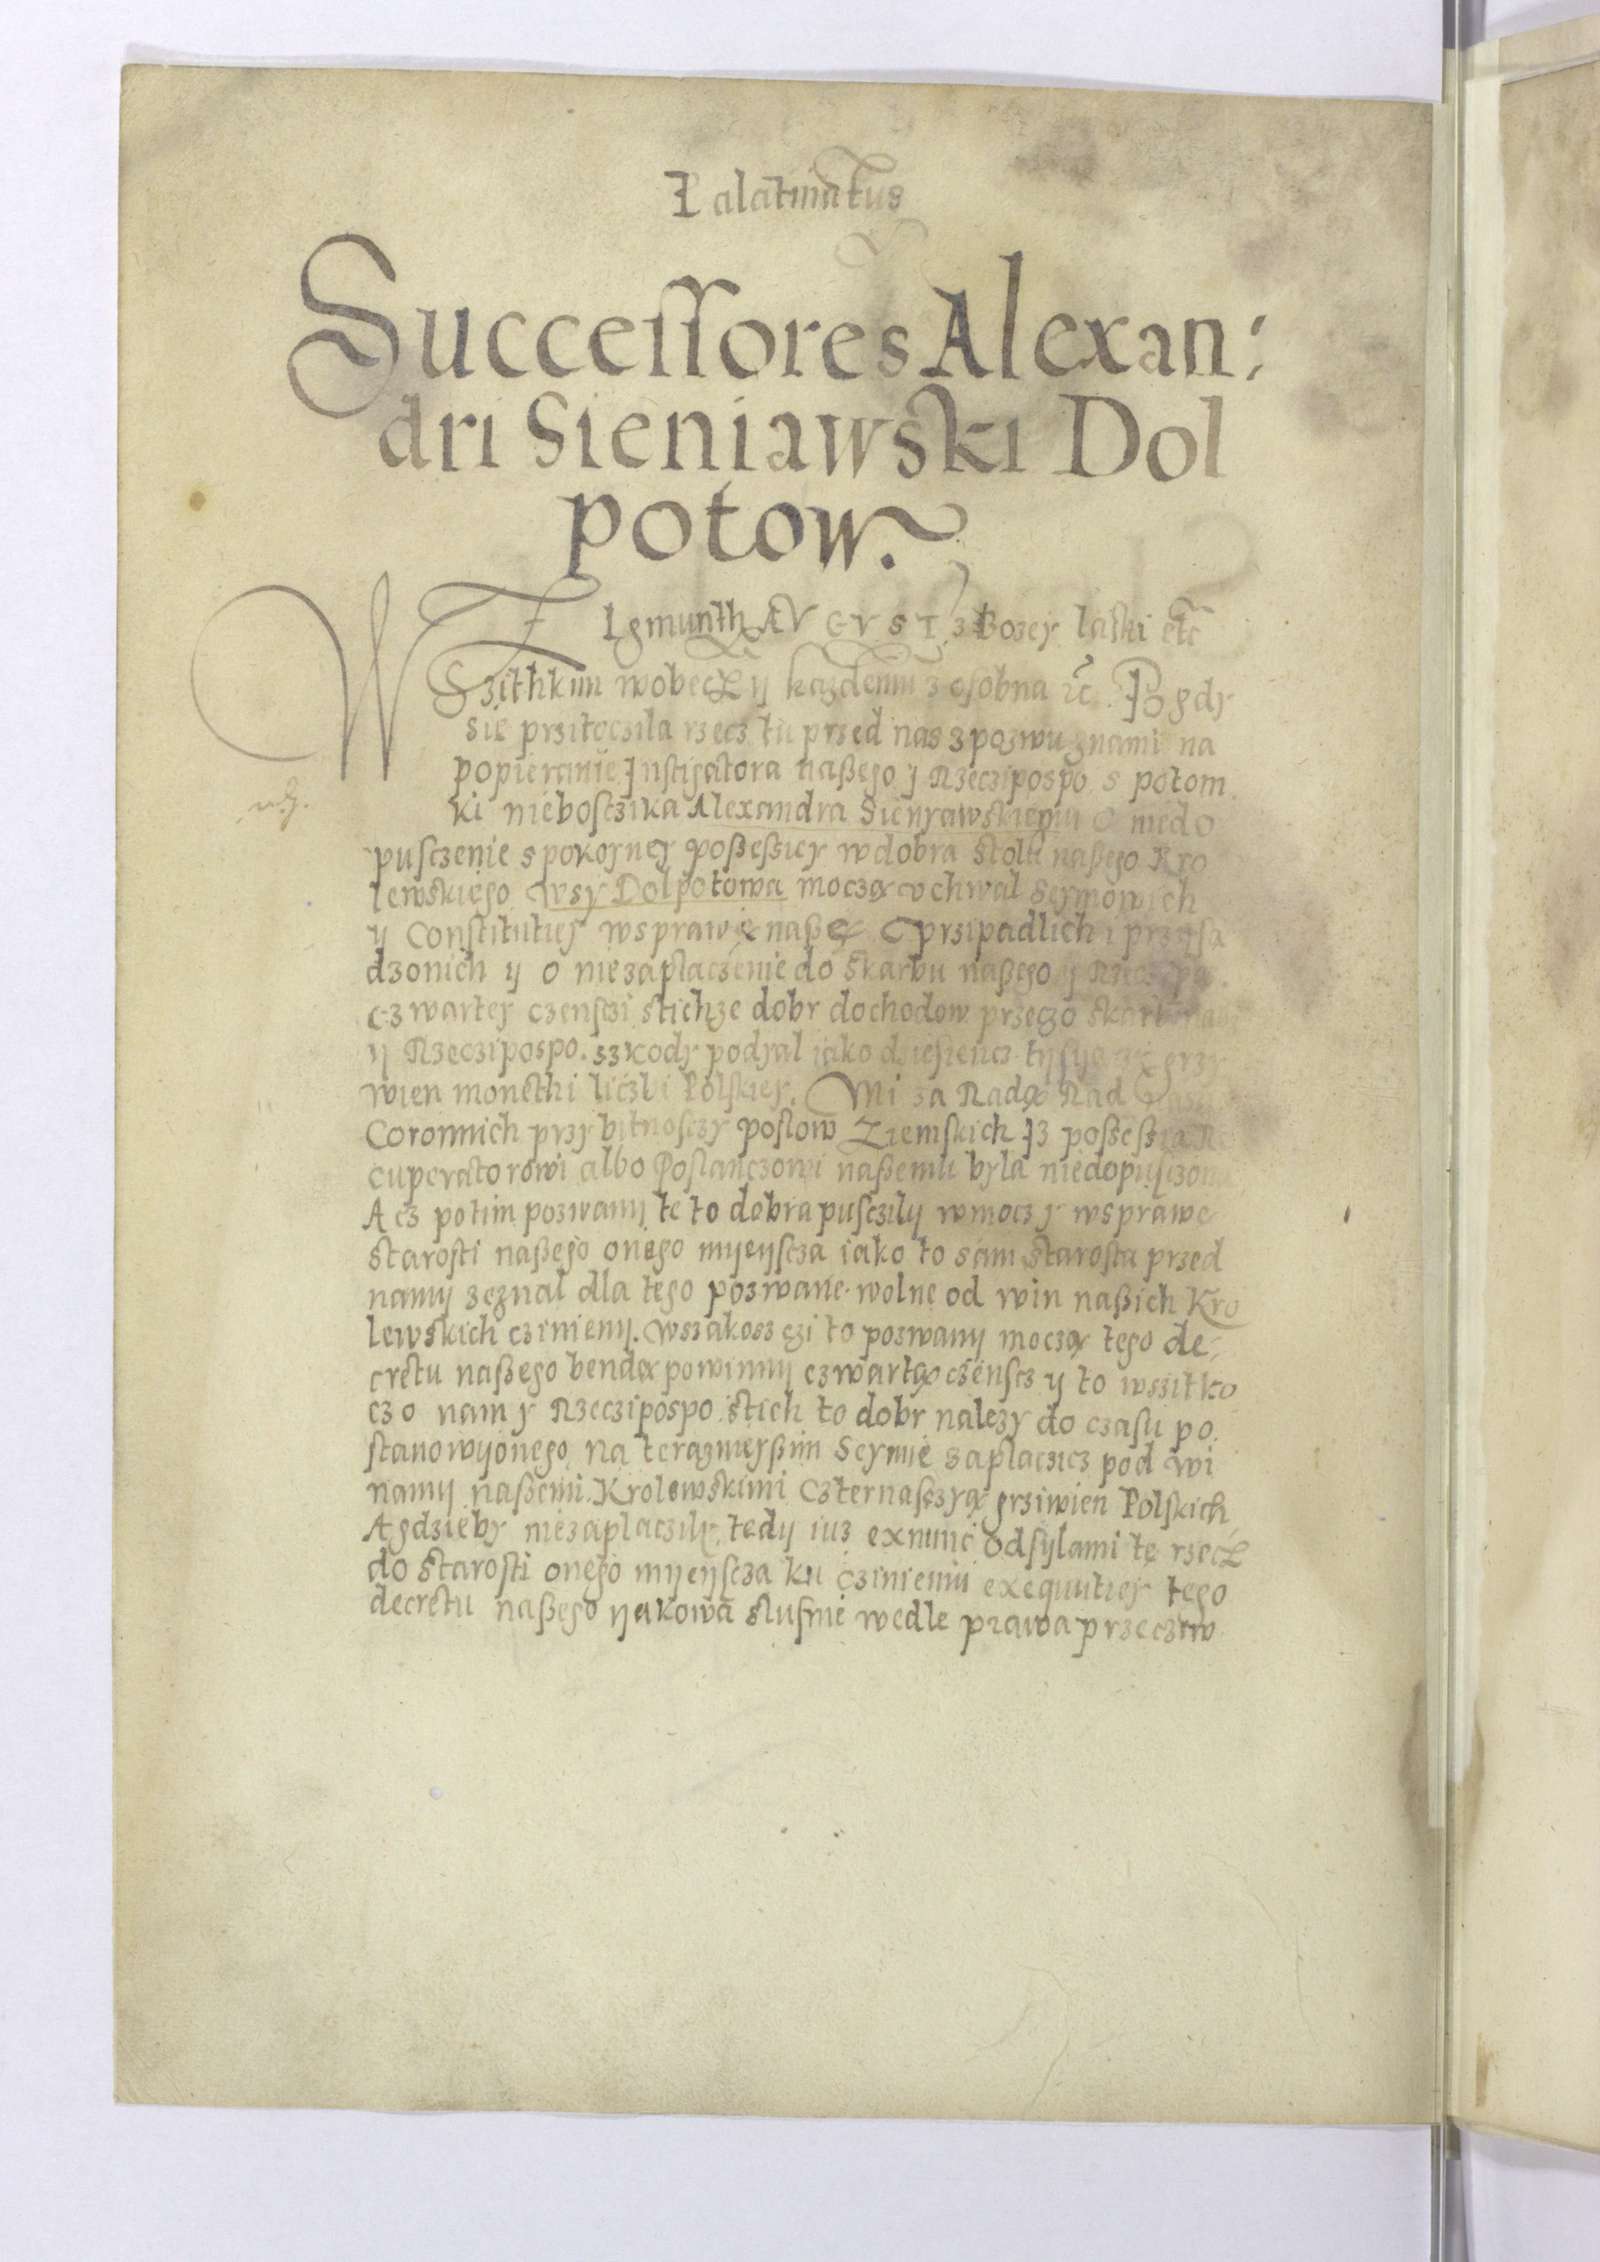 Palatinatus
Successores Alexan:
dri Sieniawski Dol
potow.
ZIgmunth AVGVST z Bozey laski etc
WSzithkim wobecz y kazdemu z osobna etc. Jz gdy
sie prziloczila rzecz tu przed nas z pozwu znami na
popieranie Instigatora naßego y Rzeczipospo s potom
ki niebosczika Alexandra Sienyawskiemu o niedo
pusczenie spokoyney poßeßiey w dobra stolu naßego Kro
lewskiego wsy Dolpotowa moczą vchwal Seymowich
y Constitutiey wsprawę naßę przipadlich i przisą
dzonich y o niezaplaczenie do skarbu naßego y Rzeczipo.
czwartey czensczi stichze dobr dochodow przeczo skarb
y Rzeczipospo. szkody podyal iako dziesiencz tysyączę grzy
wien monethi liczbi Polskiey. Mi za Radą Rad
Coronnich przy bitnosczy poslow Ziemskich Jz poßeßia Re
cuperatorowi albo Poslanczowi naßemu byla niedopusczona
A cz potim pozwany te to dobra pusczily w moczy wsprawę
starosti naßego onego myeyscza iako to sam starosta przed
namy zeznal dla tego pozwane wolne od win naßich Kro
lewskich cziniemy. wszakosz czi to pozwany moczą tego de:
cretu naßego bendą powinny czwartą częnscz y to wszitko
czo nam y Rzeczipospo. stich to dobr nalezy do czasu po.
stanowyonego na teraznieyßim Seymie zaplaczicz pod wi
namy naßemi Krolewskimi Czternasczyą grziwien Polskich
A gdzieby niezaplaczily, tedy iuz exnunc odsylami tę rzecz
do starosti onego myeyscza ku czinieniu exequutiey tego
decretu naßego yakowa slusnie wedle prawa przeczyw